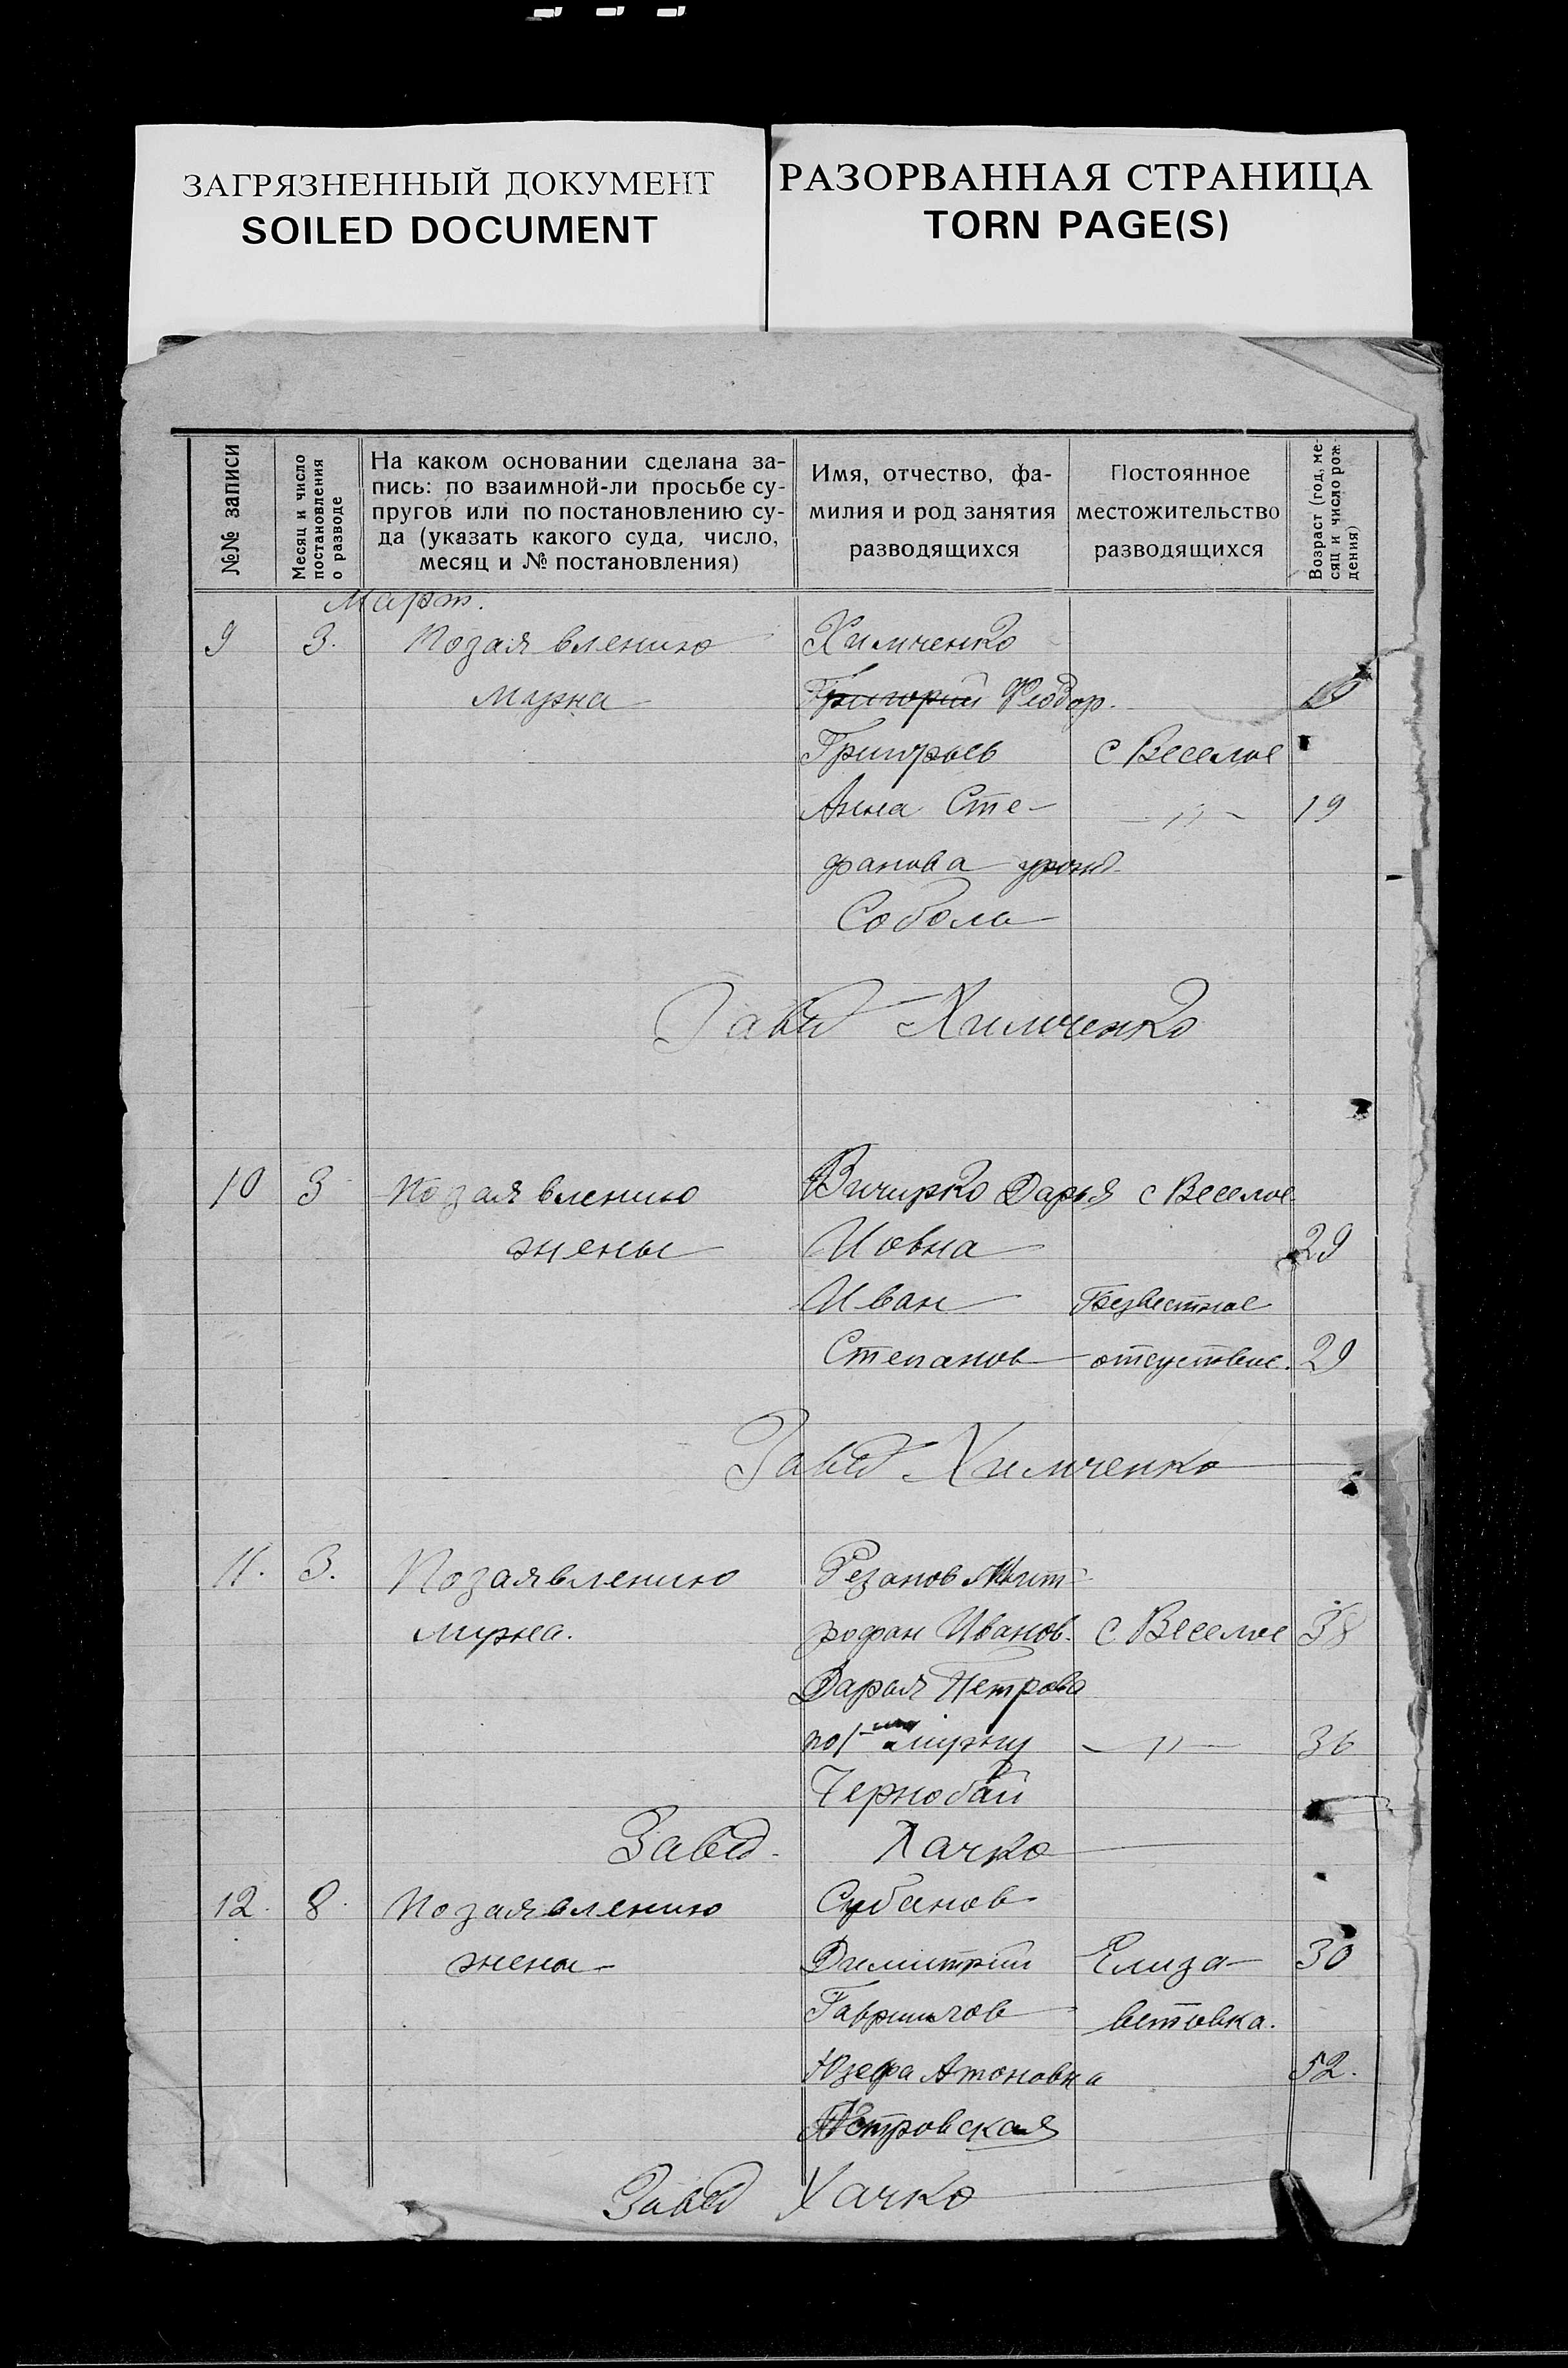 ЗАГРЯЗНЕННЫЙ ДОКУМЕНТ
SOILED DOCUMENT
РАЗОРВАННАЯ СТРАНИЦА
TORN PAGE(S)
№№ записи
Месяц и число
постановления
о разводе
На каком основании сделана за-
пись: по взаимной-ли просьбе су-
пругов или по постановлению су-
да (указать какого суда, число,
месяц и № постановления)
Имя, отчество, фа-
милия и род занятия
разводящихся
Постоянное
местожительство
разводящихся
Возраст (год, ме-
сяц и число рож
дения)
Март.
9 3. По заявлению Химченко
мужа Григорий Феодор. 19
Григорьев с Веселое
Анна Сте- —"— 19
фанова урожд.
Соболь
Завед Химченко
10 3 По заявлению Вичирко Дарья с Веселое
жены Иовна 29
Иван Безвестное
Степанов отсуствие. 29
Завед Химченко
11. 3. По заявлению Резанов Мит-
мужа. рофан Иванов. с Веселое 38
Дарья Петрова
по 1-му мужу —"— 36
Чернобай
Завед. Хачко
12. 8. По заявлению Субанов
жены Димитрий Елиза- 30
Гаврилов ветовка.
Юзефа Атоновна 52.
Петровская
Завед Хачко